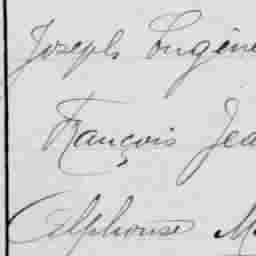 Joseph Eugène
François Jea
Alphonse M